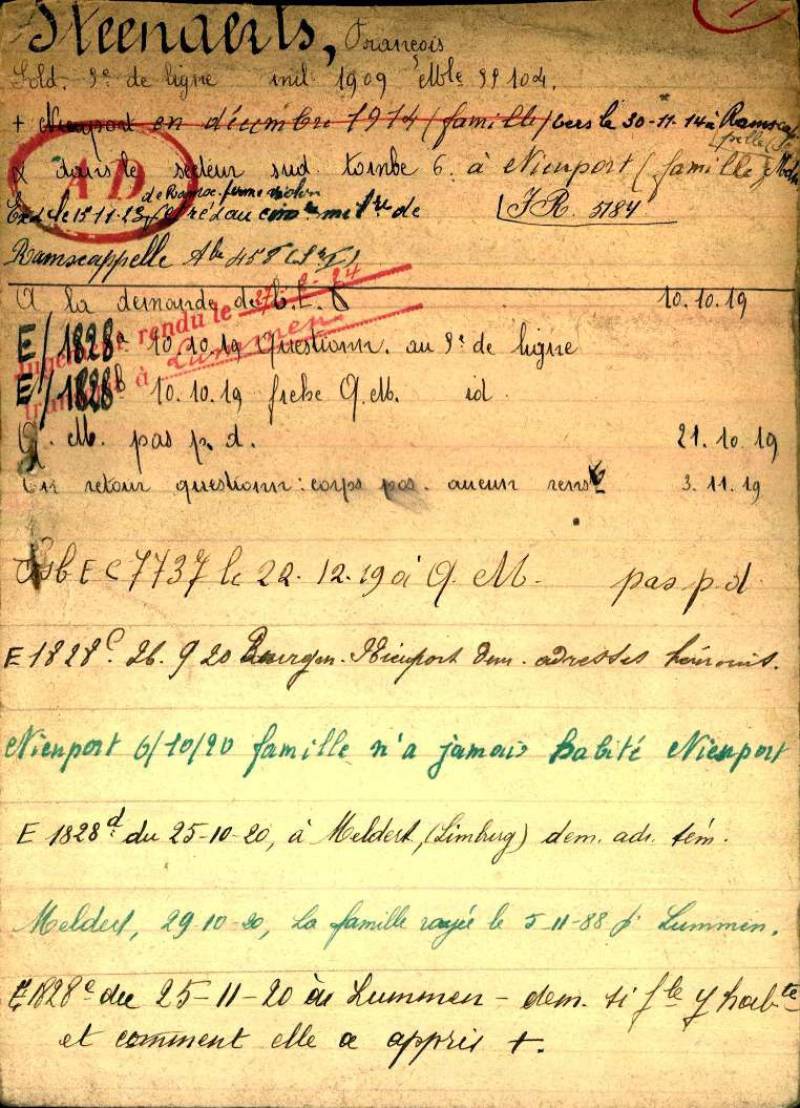 Steenaerts, François
Sold. 9e de ligne mil. 1909 Mle 99104.
+ Nieuport en décembre 1914 (famille) vers le 30-11-14 à Ramscappelle
& dans le secteur sud tombe 6. à Nieuport (famille
AD
de Ramsc. ferme violon
Exh. le 15-11-23 et ré au cim. mil.re de
I R. 5184
Ramscappelle Abe 458
A la demande de C. L. 10.10.19
Jugement rendu le 27-2-24
transmis à Lummen
E/1828a 10.10.19 Questionn. au 9e de ligne
E/1828b 10.10.19 fiche Q. M. id.
Q. M. pas p. d. 21.10.19
En retour questionn: corps pos. aucun renst 3.11.19
E C 7737 le 22.12.19 à Q. M. pas p d
E 1828c. 26. 9 20 Bourgm. Nieuport dem. adresses témoins.
Nieuport 6/10/20 famille n'a jamais habité Nieuport
E 1828d du 25-10-20, à Meldert, (Limburg) dem. adr. tém.
Meldert, 29-10-20, La famille rayée le 5-11-88 pr Lummen.
E 1828e du 25-11-20 à Lummen - dem. si flle y habte
et comment elle a appris +.